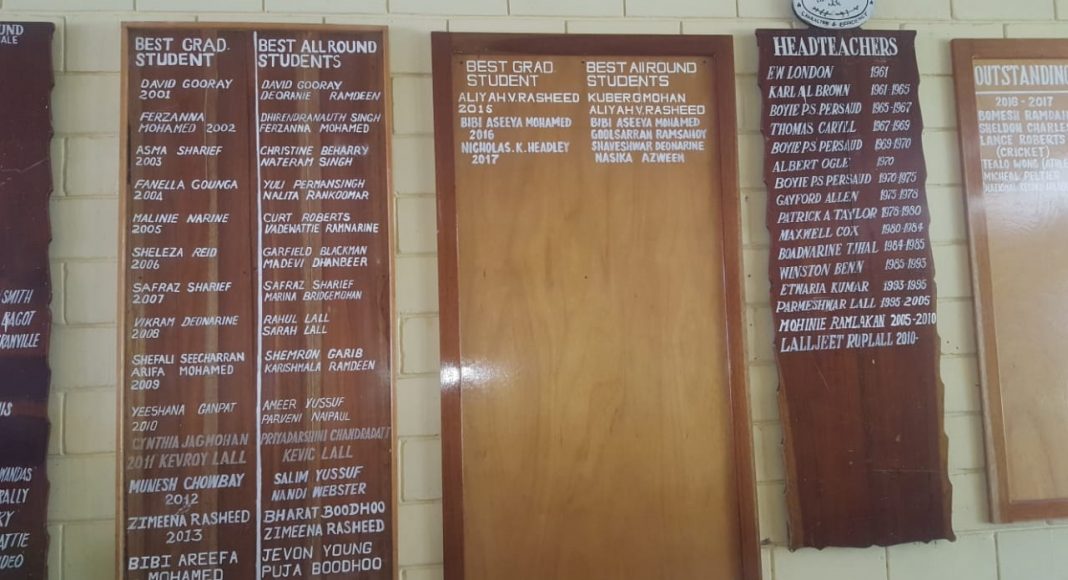 SMITH
BAGOT
RANVILLE
BEST GRAD.
STUDENT
DAVID GOORAY
2001
FERZANNA
MOHAMED 2002
ASMA SHARIEF
2003
FANELLA GOUNGA
2004
MALINIE NARINE
2005
SHELEZA REID
2006
SAFRAZ SHARIEF
2007
VIKRAM DEONARINE
2008
SHEFALI SEECHARRAN
ARIFA MOHAMED
2009
YEESHANA GANPAT
2010
CYNTHIA JAGMOHAN
2011 KEVROY LALL
MUNESH CHOWBAY
2012
ZIMEENA RASHEED
2013
BIBI AREEFA
MOHAMED
BEST ALLROUND
STUDENTS
DAVID GOORAY
DEORANIE RAMDEEN
DHIRENDRANAUTH SINGH
FERZANNA MOHAMED
CHRISTINE BEHARRY
NATERAM SINGH
YULI PERMANSINGH
NALITA RAMKOOMAR
CURT ROBERTS
VADEWATTIE RAMNARINE
GARFIELD BLACKMAN
MADEVI DHANBEER
SAFRAZ SHARIEF
MARINA BRIDGEMOHAN
RAHUL LALL
SARAH LALL
SHEMRON GARIB
KARISHMALA RAMDEEN
AMEER YUSSUF
PARVENI NAIPAUL
PRIYADARSHINI CHANDRADATT
KEVIC LALL
SALIM YUSSUF
NANDI WEBSTER
BHARAT BOODHOO
ZIMEENA RASHEED
JEVON YOUNG
PUJA BOODHOO
BEST GRAD.
STUDENT
ALIYAH.V.RASHEED
2015
BIBI ASEEYA MOHAMED
2016
NICHOLAS.K.HEADLEY
2017
BEST AllROUND
STUDENTS
KUBER.G.MOHAN
ALIYAH.V.RASHEED
BIBI ASEEYA MOHAMED
GOOLSARRAN RAMSAHOY
SHAVESHWAR DEONARINE
NASIKA AZWEEN
HEADTEACHERS
E.W LONDON 1961
KARL A.L BROWN 1961-1965
BOYIE P.S PERSAUD 1965-1967
THOMAS CARYLL 1967-1969
BOYIE P.S PERSAUD 1969-1970
ALBERT OGLE 1970
BOYIE P.S PERSAUD 1970-1975
GAYFORD ALLEN 1975-1978
PATRICK A TAYLOR 1978-1980
MAXWELL COX 1980-1984
BOADNARINE TJHAL 1984-1985
WINSTON BENN 1985-1993
ETWARIA KUMAR 1993-1995
PARMESHWAR LALL 1995-2005
MOHINIE RAMLAKAN 2005-2010
LALLJEET RUPLALL 2010-
OUTSTANDING
2016 - 2017
BOMESH RAMDAJ
SHELDON CHARLES
LANCE ROBERTS
(CRICKET)
TEALO WONG
MICHEAL PELTIER